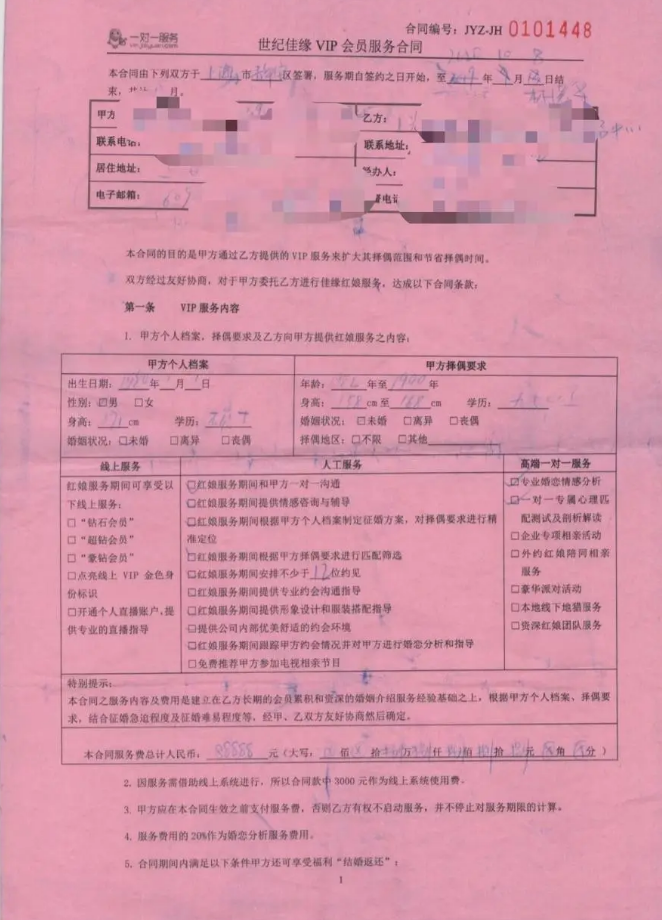 一对一服务
合同编号：JYZ-JH 0101448
世纪佳缘 VIP 会员服务合同
本合同由下列双方于 上海 市 区签署，服务期自签约之日开始，至 年 月 日结
束， 月。
甲方
乙方：
联系电话：
联系地址：
居住地址：
经办人：
电子邮箱：
电话
本合同的目的是甲方通过乙方提供的 VIP 服务来扩大其择偶范围和节省择偶时间。
双方经过友好协商，对于甲方委托乙方进行佳缘红娘服务，达成以下合同条款：
第一条 VIP 服务内容
1. 甲方个人档案、择偶要求及乙方向甲方提供红娘服务之内容：
甲方个人档案
出生日期： 年 月 日
性别：☑男 □女
身高： 171 cm 学历：
婚姻状况：□未婚 □离异 □丧偶
甲方择偶要求
年龄： 年至 年
身高： 158 cm 至 168 cm 学历：
婚姻状况： □未婚 □离异 □丧偶
择偶地区：□不限 □其他
线上服务
红娘服务期间可享受以
下线上服务：
□“钻石会员”
□“超钻会员”
□“豪钻会员”
□点亮线上 VIP 金色身
份标识
□开通个人直播账户、提
供专业的直播指导
人工服务
☑红娘服务期间和甲方一对一沟通
☑红娘服务期间提供情感咨询与辅导
☑红娘服务期间根据甲方个人档案制定征婚方案，对择偶要求进行精
准定位
☑红娘服务期间根据甲方择偶要求进行匹配筛选
☑红娘服务期间安排不少于 12 位约见
☑红娘服务期间提供专业约会沟通指导
☑红娘服务期间提供形象设计和服装搭配指导
☑提供公司内部优美舒适的约会环境
☑红娘服务期间跟踪甲方约会情况并对甲方进行婚恋分析和指导
□免费推荐甲方参加电视相亲节目
高端一对一服务
☑专业婚恋情感分析
☑一对一专属心理匹
配测试及剖析解读
□企业专项相亲活动
□外约红娘陪同相亲
服务
□豪华派对活动
□本地线下地猎服务
□资深红娘团队服务
特别提示：
本合同之服务内容及费用是建立在乙方长期的会员累积和资深的婚姻介绍服务经验基础之上，根据甲方个人档案、择偶要
求，结合征婚急迫程度及征婚难易程度等，经甲、乙双方友好协商然后确定。
本合同服务费总计人民币： 88888 元（大写， 佰 拾 万 仟 佰 拾 元 角 分）
2. 因服务需借助线上系统进行，所以合同款中 3000 元作为线上系统使用费。
3. 甲方应在本合同生效之前支付服务费，否则乙方有权不启动服务，并不停止对服务期限的计算。
4. 服务费用的 20%作为婚恋分析服务费用。
5. 合同期间内满足以下条件甲方还可享受福利“结婚返还”：
1